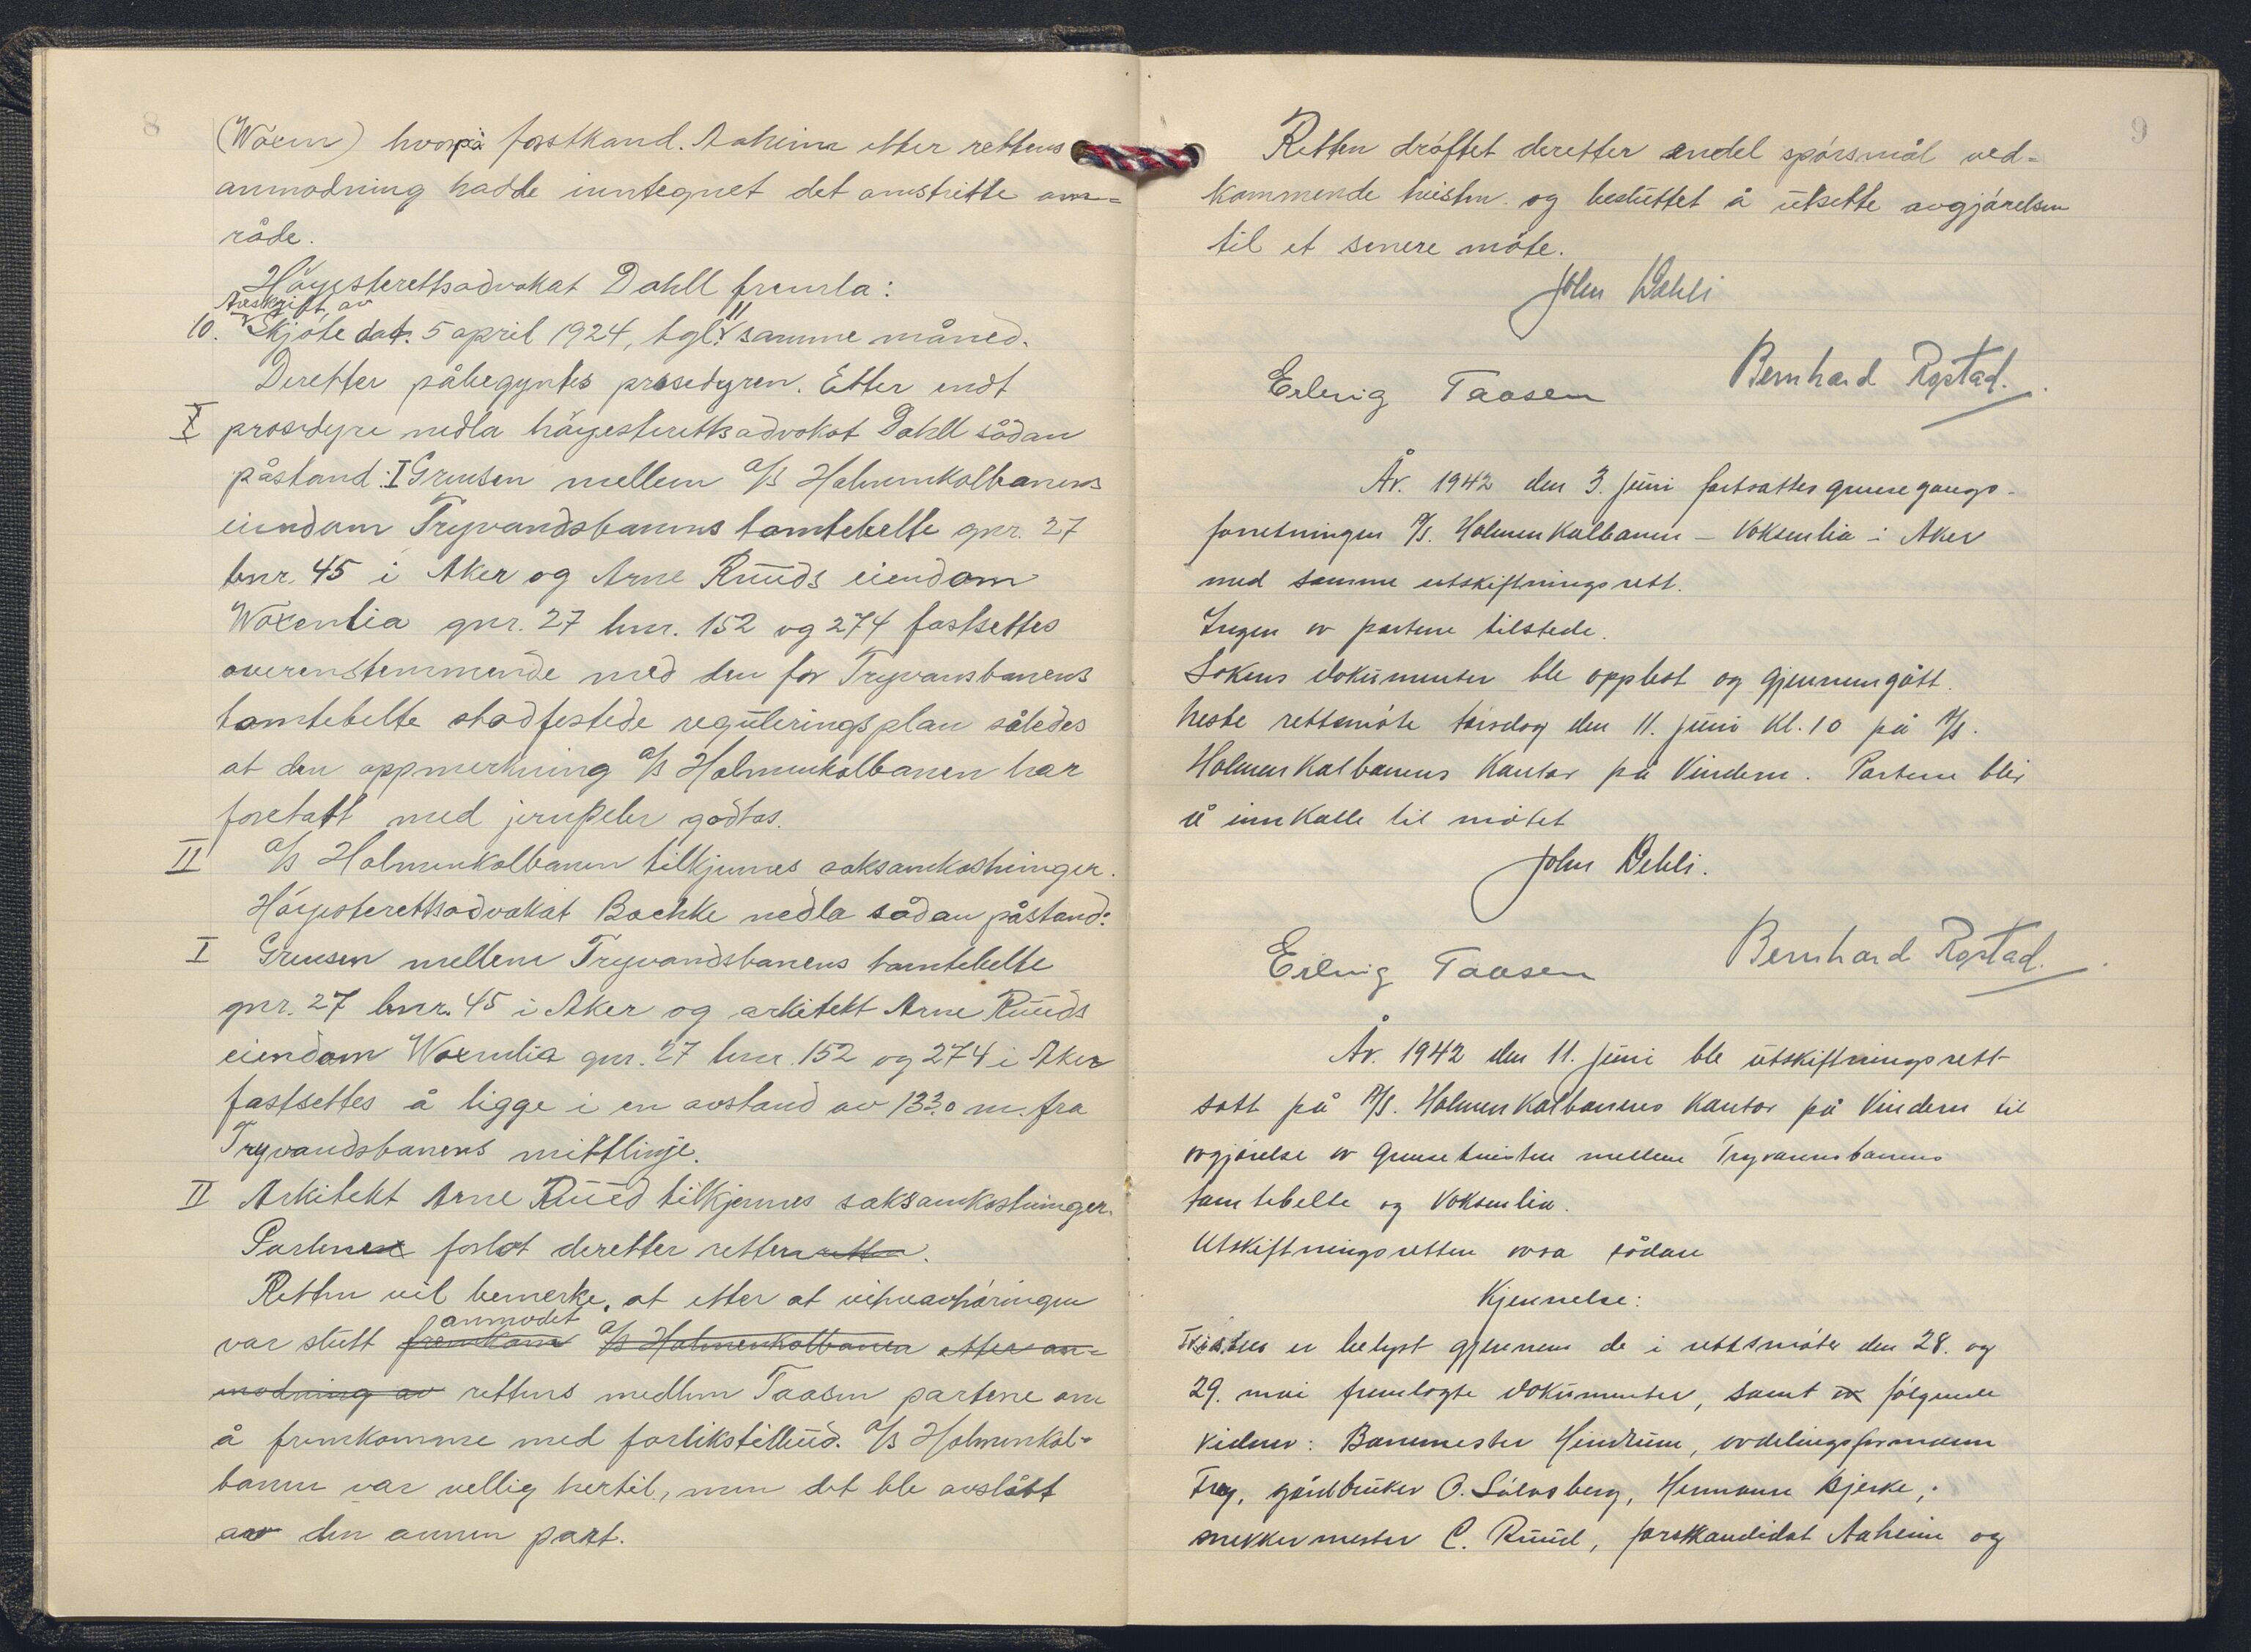 8
(Woxen) hvorpå forstkand. Aaheim etter rettens
anmodning hadde inntegnet det omstritte om=
råde.
Höyesterettsadvokat Dahll fremla:
Avskrift av
10. Skjöte dat. 5 april 1924, tgl. 11 samme måned.
Deretter påbegyntes prosedyren. Etter endt
I prosedyre nedla höyesterettsadvokat Dahll sådan
påstand: I Grensen mellem a/s Holmenkolbanens
eiendom Tryvandsbanens tomtebelte gnr. 27
bnr. 45 i Aker og Arne Ruuds eiendom
Woxenlia gnr. 27 bnr. 152 og 274 fastsettes
overenstemmende med den for Tryvansbanens
tomtebelte stadfestede reguleringsplan således
at den oppmerkning a/s Holmenkolbanen har
foretatt med jernpeler godtas.
II a/s Holmenkolbanen tilkjennes saksomkostninger.
Höyesterettsadvokat Bachke nedla sådan påstand:
I Grensen mellem Tryvandsbanens tomtebelte
gnr. 27 bnr. 45 i Aker og arkitekt Arne Ruuds
eiendom Woxenlia gnr. 27 bnr. 152 og 274 i Aker
fastsettes å ligge i en avstand av 13.30 m. fra
Tryvandsbanens mittlinje.
II Arkitekt Arne Ruud tilkjennes saksomkostninger.
Partene forlot deretter retten retten.
Retten vil bemerke, at etter at vitneavhöringen
anmodet
var slutt fremkom a/s Holmenkolbanen etter an=
modning av rettens medlem Taasen partene om
å fremkomme med forlikstilbud. a/s Holmenkol=
banen var villig hertil, men det ble avslått
av den annen part.
9
Retten dröftet deretter endel spörsmål ved=
kommende tvisten og besluttet å utsette avgjörelsen
til et senere möte.
John Dehli
Erling Taasen Bernhard Rostad.
År. 1942 den 3. juni fortsattes grensegangs-
forretningen A/S. Holmenkolbanen – Voksenlia i Aker
med samme utskiftningsrett.
Ingen av partene tilstede.
Sakens dokumenter ble opplest og gjennemgått.
Neste rettsmöte torsdag den 11. juni kl. 10 på A/S.
Holmenkolbanens kontor på Vindern. Partene blir
å innkalle til mötet
John Dehli.
Erling Taasen Bernhard Rostad.
År. 1942 den 11. juni ble utskiftningsrett
satt på A/S. Holmenkolbanens kontor på Vindern til
avgjörelse av grensetvisten mellem Tryvannsbanens
tomtebelte og Voksenlia.
Utskiftningsretten avsa sådan
Kjennelse:
Tvisten er belyst gjennem de i rettsmöter den 28. og
29. mai fremlagte dokumenter, samt av fölgende
vidner: Banemester Hendrum, avdelingsformann
Frey, gårdbruker O. Sölvsberg, Hermann Bjerke,
snekkermester C. Ruud, forstkandidat Aaheim og